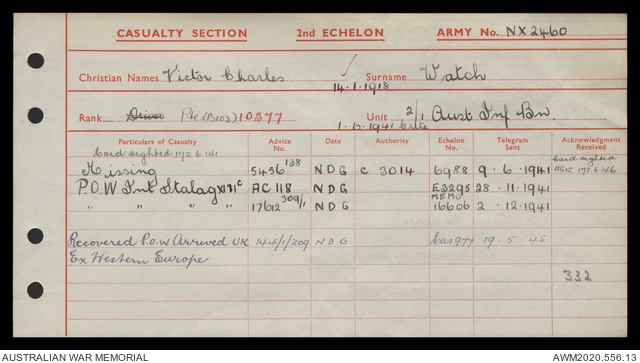 CASUALTY SECTION 2nd ECHELON ARMY No. NX2460
Christian Names Victor Charles 14.1.1918 Surname Watch
Rank Driver Pte (Bros) 10377 Unit 2/1 Aust Inf Bn.
1.6.1941 Crete
Particulars of Casualty Advice No. Date Authority Echelon No. Telegram Sent Acknowledgment Received
Card sighted 172.6.141
Missing 5436 138 NDG C 3014 6988 9.6.1941 Card sighted A512 172.6.146
P.O.W Int Stalag XIIIc AC 118 NDG E3295 28.11.1941
" " " 17612 309/1 NDG MEMO 16606 2.12.1941
Recovered P.o.w Arrived UK 144/1/209 NDG Cas977 19.5.45
Ex Western Europe
332
AUSTRALIAN WAR MEMORIAL AWM2020.556.13